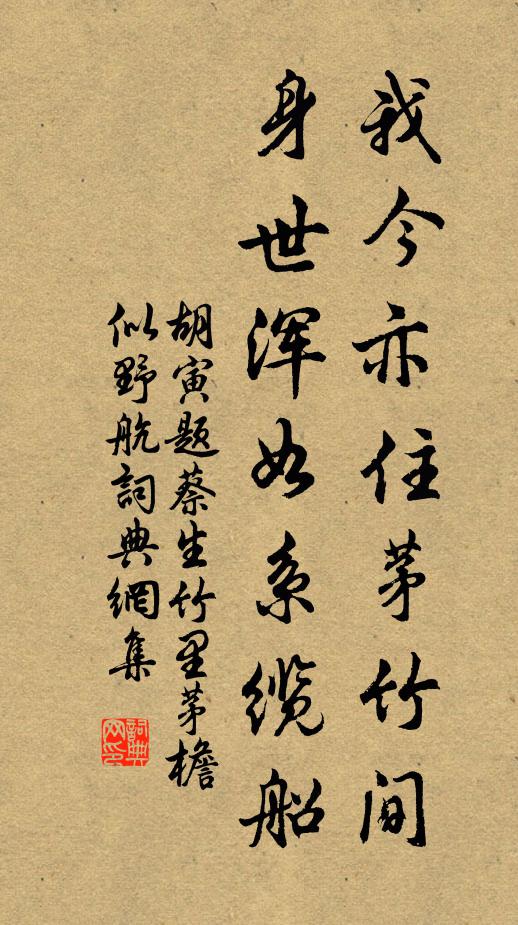 我今亦住茅竹间
身世浑如系缆船
胡寅题蔡生竹里茅檐
似野航詞典網集
詞典網印